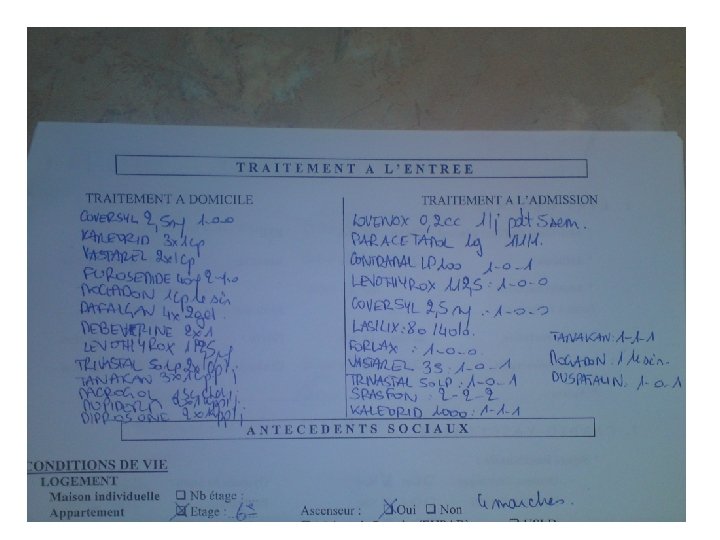 TRAITEMENT A L'ENTREE
TRAITEMENT A DOMICILE
COVERSYL 2,5mg 1.0.0
KALEORID 3x1cp
VASTAREL 2x1cp
FUROSEMIDE 40mg 2-1-0
MOGADON 1cp le soir
DAFALGAN 4x2gel.
MEBEVERINE 2x1
LEVOTHYROX 112,5mg
TRIVASTAL 50LP 2x1
TANAKAN 3x1cp
MACROGOL
MOPIDERM
DIPROSONE 2x1
TRAITEMENT A L'ADMISSION
LOVENOX 0,2cc 1/j pdt 5sem.
PARACETAMOL 1g 1/1/1.
CONTRAMAL LP100 1-0-1
LEVOTHYROX 112,5 : 1-0-0
COVERSYL 2,5mg : 1-0-0
LASILIX : 80/40/0.
FORLAX : 1-0-0.
VASTAREL 35 : 1-0-1
TRIVASTAL 50LP : 1-0-1
SPASFON : 2-2-2
KALEORID 1000 : 1-1-1
TANAKAN : 1-1-1
MOGADON : 1 le soir.
DUSPATALIN : 1-0-1
ANTECEDENTS SOCIAUX
CONDITIONS DE VIE
LOGEMENT
Maison individuelle ☐ Nb étage :
Appartement ☒ Etage : 6è Ascenseur : ☒ Oui ☐ Non 4 marches.